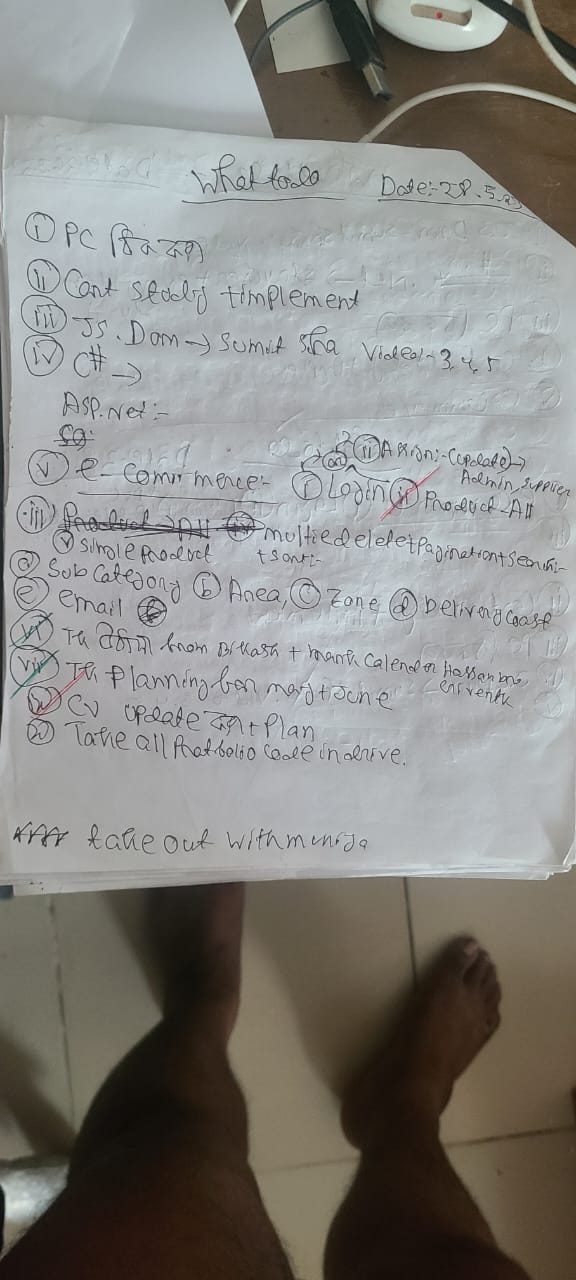 What to do Date:-28.5.
(i) PC ঠিক করা
(ii) Cant study + implement
(iii) JS. Dom → Sumit sha Video:-3,4,5
(iv) C# →
ASP.Net:-
(v) e-commerce:- (i) Login (ii) Assign:-(update)→ Admin, Supplier
Product-All
(iii) Product → All multiedelete+Pagination+Search+Sort:-
(v) Simple Product
(a) Sub Category (b) Area, (c) Zone (d) Delivery Coast
(e) email
(vi) Tk from Bikash + mark Calender
(vii) Tk Planning for may+June
CV update করা + Plan
Take all Portfolio code in drive.
take out with